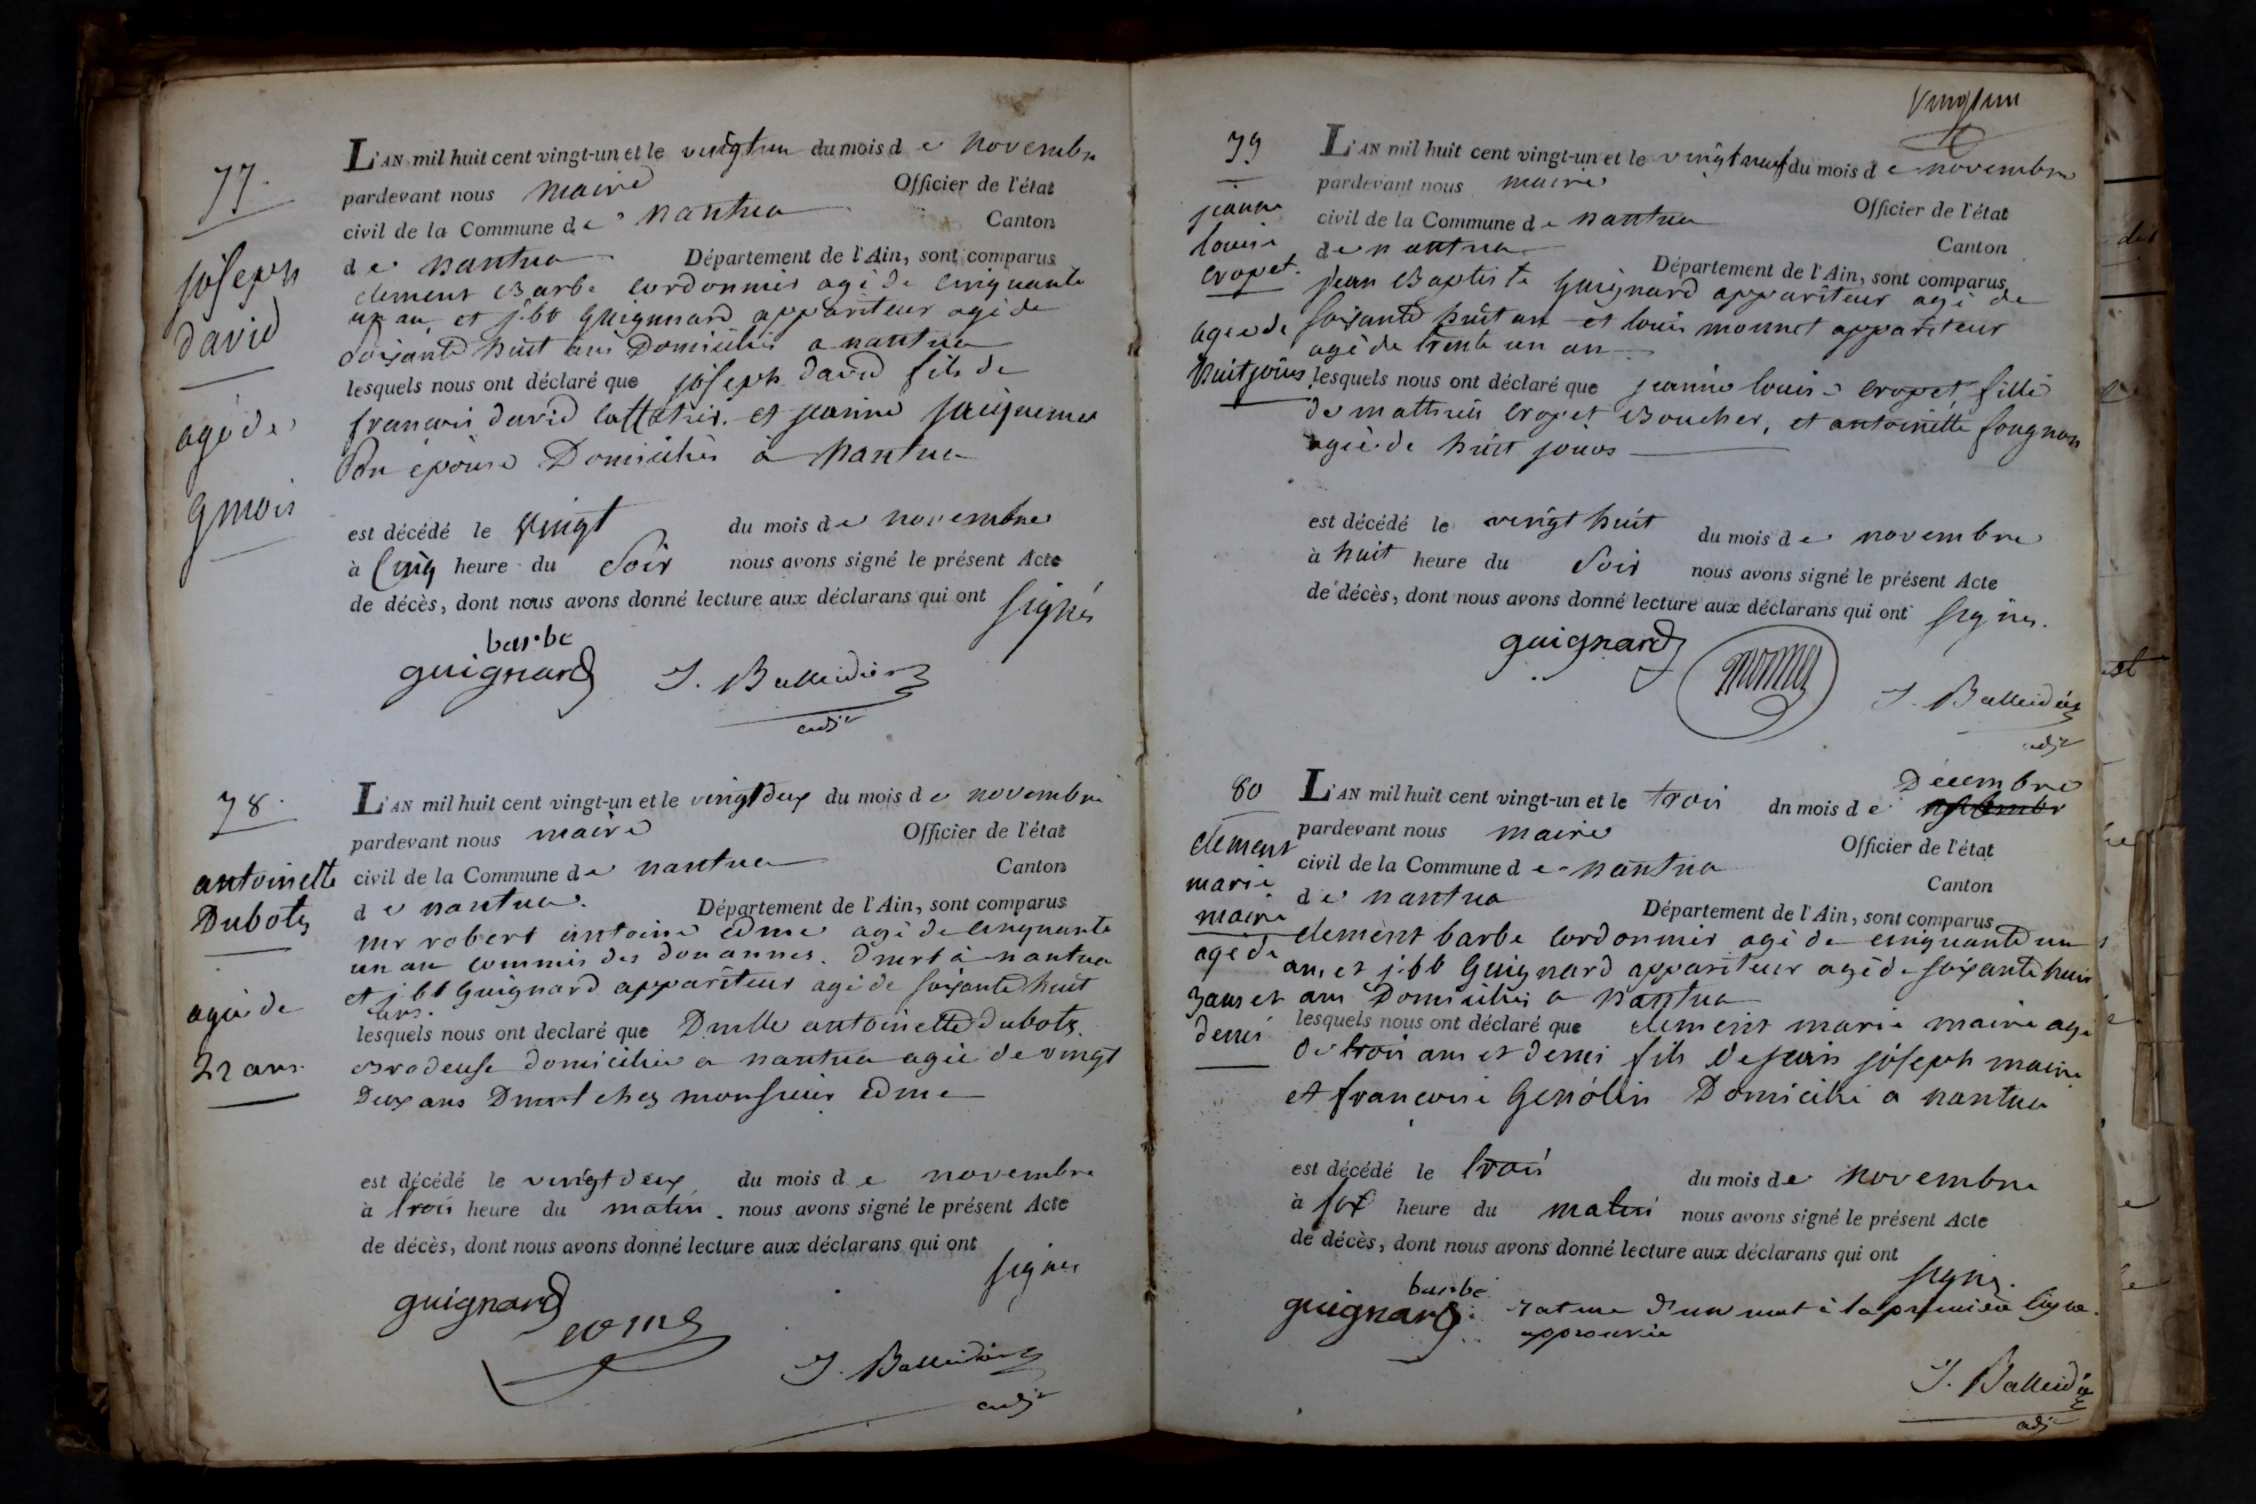 77.
joseph
david
agé de
9 mois
L'AN mil huit cent vingt-un et le vingt un du mois de novembre
pardevant nous maire Officier de l'état
civil de la Commune de nantua Canton
de nantua Département de l'Ain, sont comparus
clement Barbe cordonnier agé de cinquante
un an et j. bt Guignard appariteur agé de
soixante huit ans Domiciliés a nantua
lesquels nous ont déclaré que joseph david fils de
francois david et jeanne
son épouse Domiciliés à nantua
est décédé le vingt du mois de novembre
à cinq heure du soir nous avons signé le présent Acte
de décès, dont nous avons donné lecture aux déclarans qui ont signés
barbe
guignard J. Balleidier
adjt
78.
antoinette
Dubots
agée de
22 ans.
L'AN mil huit cent vingt-un et le vingt deux du mois de novembre
pardevant nous maire Officier de l'état
civil de la Commune de nantua Canton
de nantua. Département de l'Ain, sont comparus
mr robert antoine edme agé de cinquante
un an commis des douannes. Dmrt à nantua
et j. bt Guignard appariteur agé de soixante huit
ans.
lesquels nous ont declaré que Dmlle antoinette dubots.
Brodeuse domiciliée a nantua agée de vingt
deux ans Dmrt chez monsieur edme
est décédé le vingt deux du mois de novembre
à trois heure du matin. nous avons signé le présent Acte
de décès, dont nous avons donné lecture aux déclarans qui ont
signés
guignard
edme
J. Balleidier
adjt
Vingt un
79
jeanne
louise
cropet.
agee de
huit jours
L'AN mil huit cent vingt-un et le vingt neuf du mois de novembre
pardevant nous maire Officier de l'état
civil de la Commune de nantua Canton
de nantua Département de l'Ain, sont comparus
jean Baptiste Guignard appariteur agé de
soixante huit ans et louis monnet appariteur
agé de trente un an
lesquels nous ont déclaré que jeanne louise cropet fille
de mathieu cropet Boucher, et antoinette
agée de huit jours
est décédé le vingt huit du mois de novembre
à huit heure du soir nous avons signé le présent Acte
de décès, dont nous avons donné lecture aux déclarans qui ont signés.
guignard
monnet
J. Balleidier
adjt
80
clement
marie
maire
agé de
3 ans et
demi
L'AN mil huit cent vingt-un et le trois dn mois de Décembre
pardevant nous maire Officier de l'état
civil de la Commune de nantua Canton
de nantua Département de l'Ain, sont comparus
clement barbe cordonnier agé de cinquante un
an, et j. bt Guignard appariteur agé de soixante huit
ans Domiciliés a nantua
lesquels nous ont déclaré que clement marie maire agé
de trois ans et demi fils de jean joseph maire
et francoise Genolin Domicilié a nantua
est décédé le trois du mois de novembre
à six heure du matin nous avons signé le présent Acte
de décès, dont nous avons donné lecture aux déclarans qui ont
signé.
barbe
guignard rature d'un mot à la premiere ligne.
approuvée
J. Balleidier
adjt